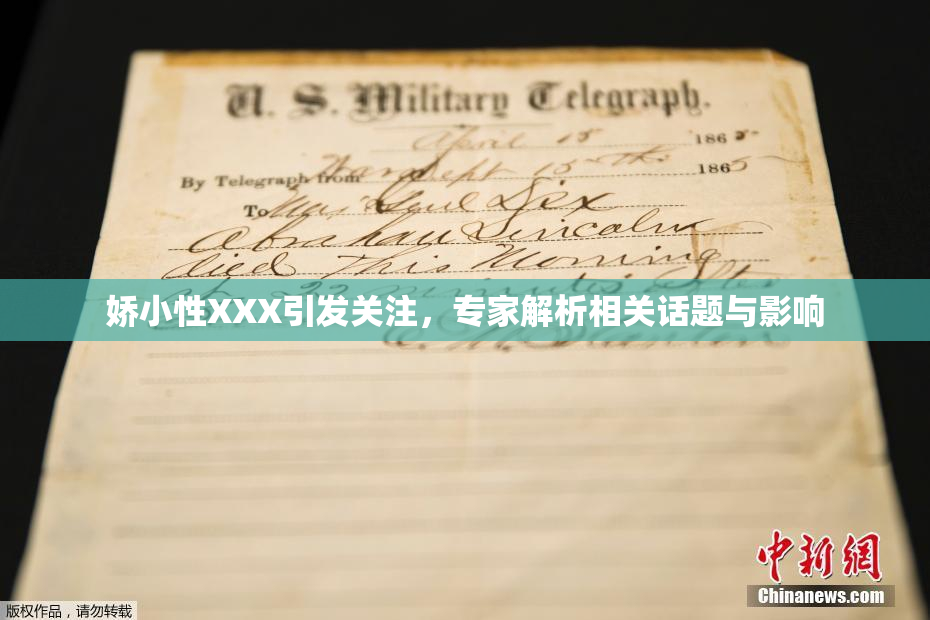 U. S. Military Telegraph.
April 15 1865-
By Telegraph from War Dept 15th 1865
To Maj Genl Dix
Abraham Lincoln
died This Morning
at 22 minutes after
娇小性XXX引发关注，专家解析相关话题与影响
中新网
Chinanews.com
版权作品，请勿转载